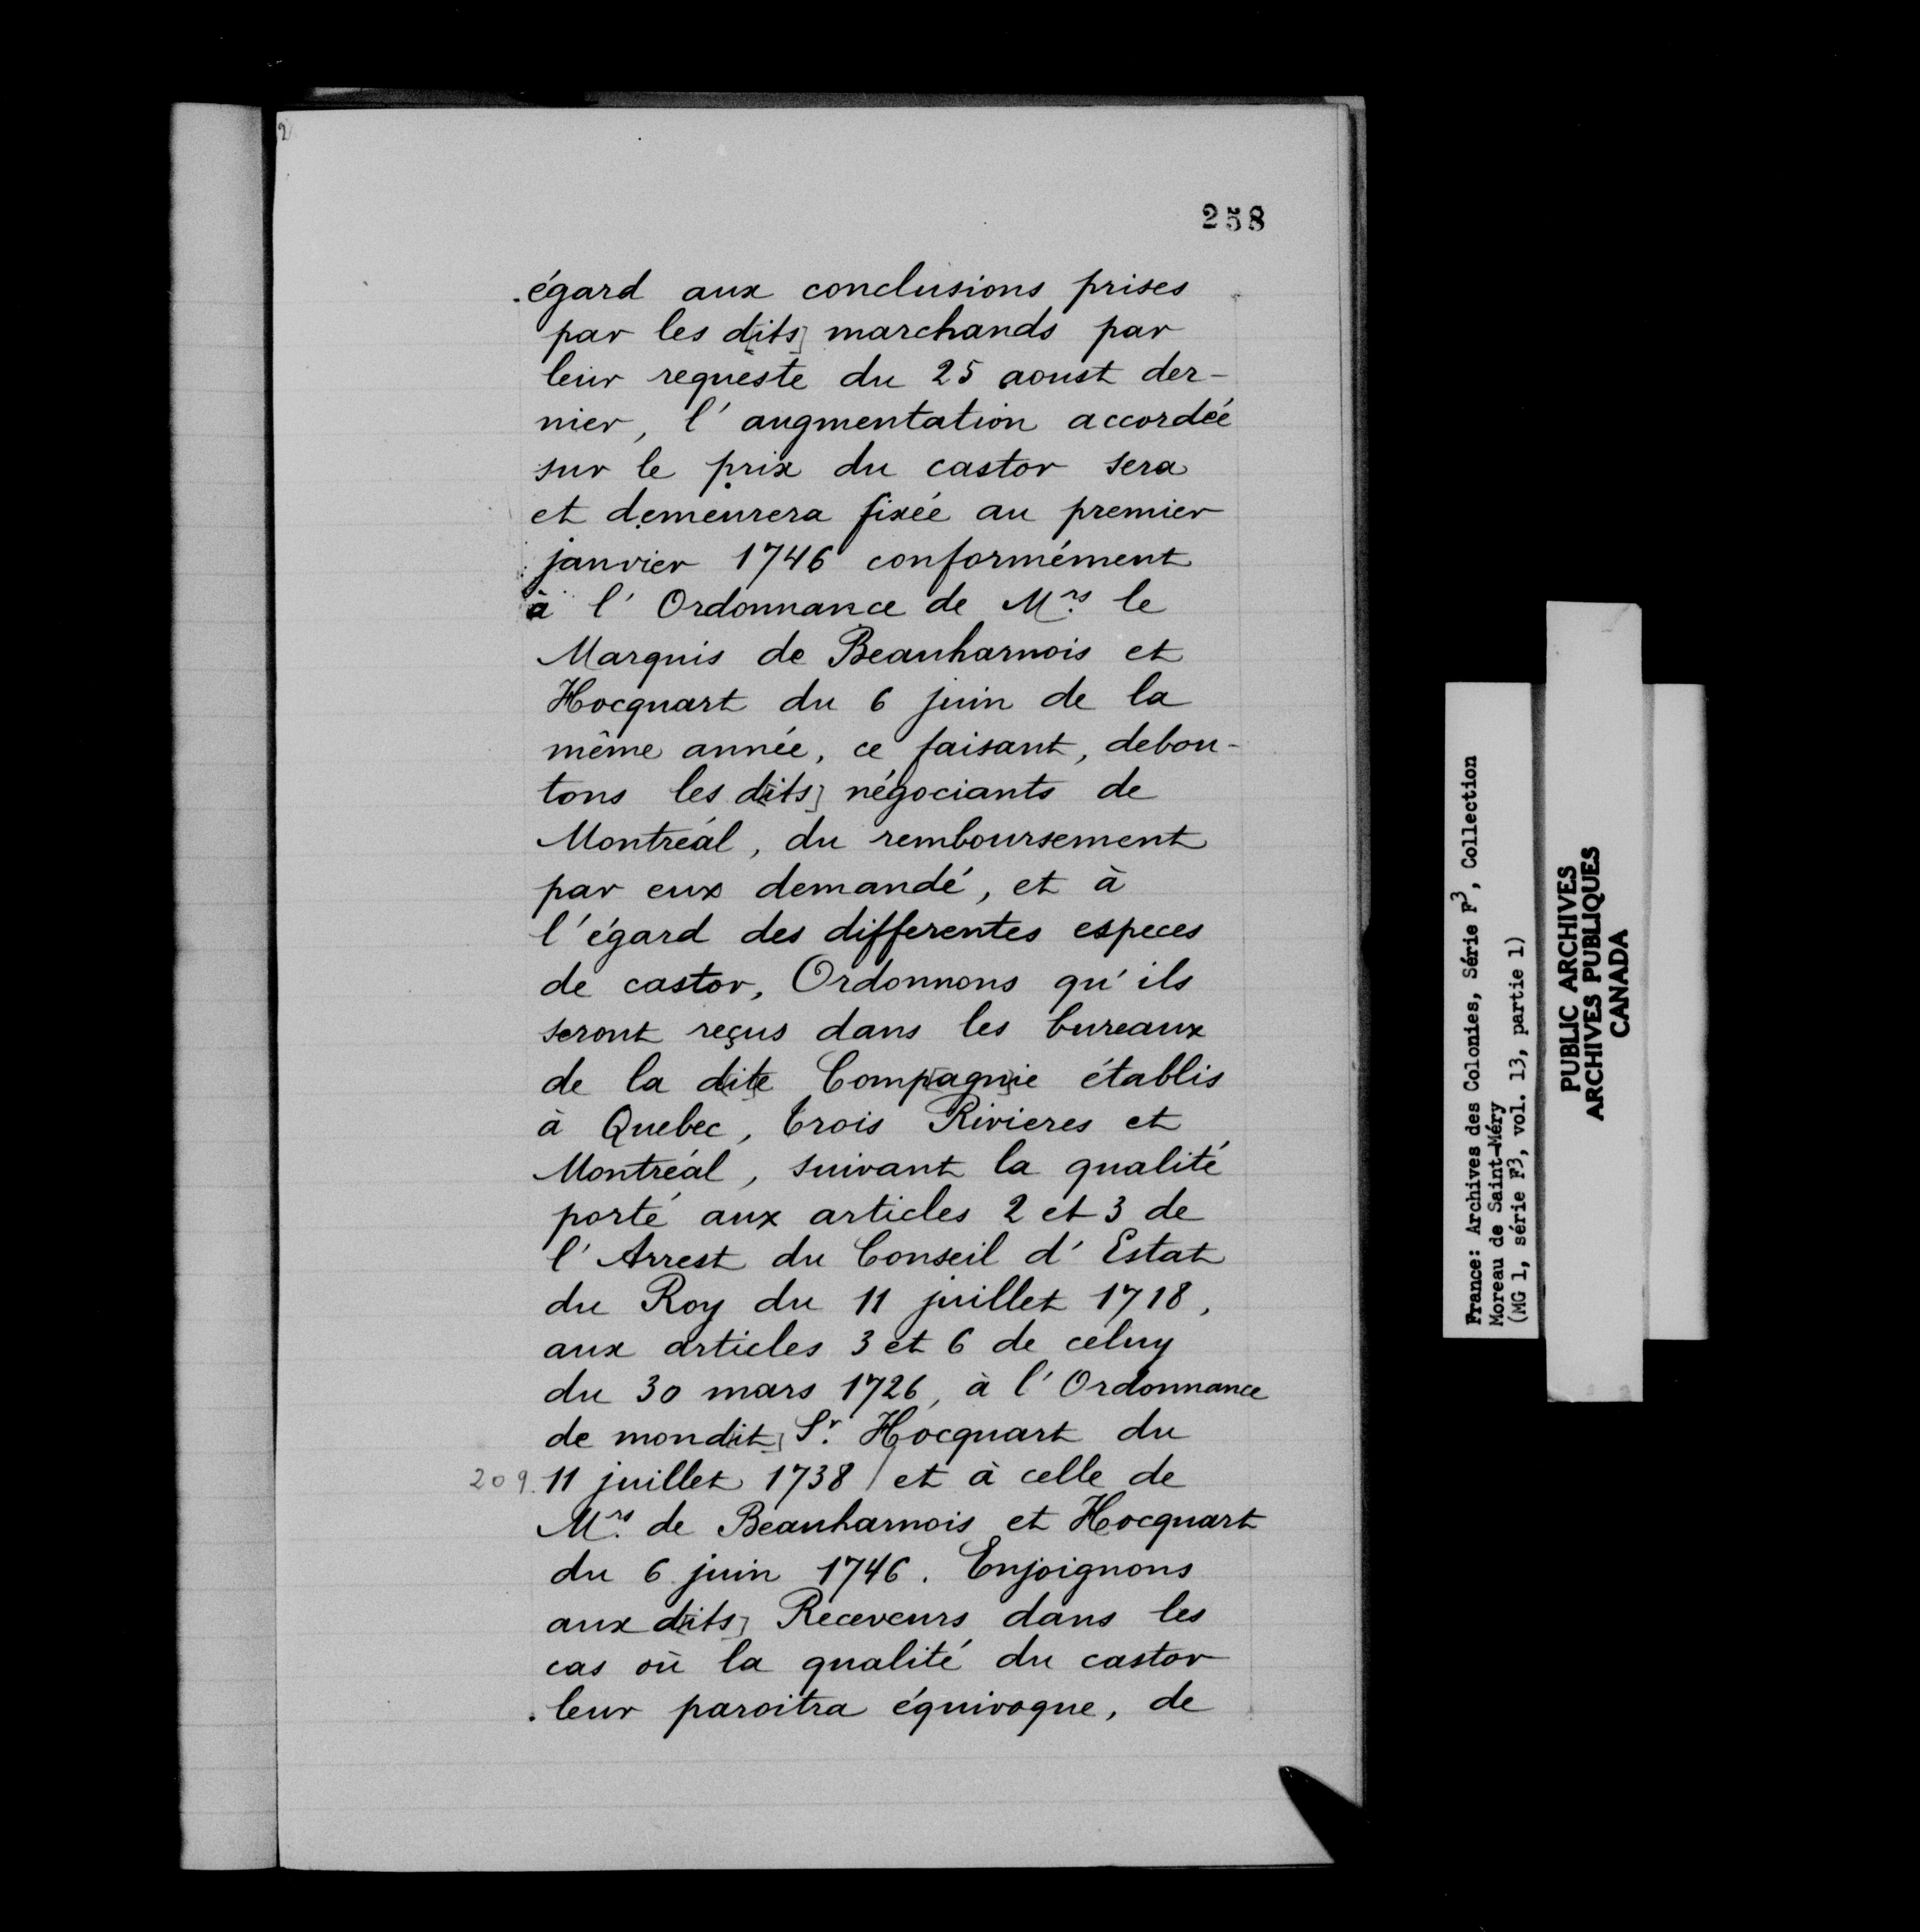 258
égard aux conclusions prises
par les d[its] marchands par
leur requeste du 25 aoust der-
nier, l'augmentation accordée
sur le prix du castor sera
et demeurera fixée au premier
janvier 1746 conformément
à l'Ordonnance de Mrs. le
Marquis de Beauharnois et
Hocquart du 6 juin de la
même année, ce faisant, debou-
tons les d[its] négociants de
Montréal, du remboursement
par eux demandé, et à
l'égard des differentes especes
de castor, Ordonnons qu'ils
seront reçus dans les bureaux
de la d[it]e Comp[agn]ie établis
à Quebec, trois Rivieres et
Montréal, suivant la qualité
porté aux articles 2 et 3 de
l'Arrest du Conseil d'Estat
du Roy du 11 juillet 1718,
aux articles 3 et 6 de celuy
du 30 mars 1726, à l'Ordonnance
de mond[it] Sr. Hocquart du
209. 11 juillet 1738 / et à celle de
Mrs. de Beauharnois et Hocquart
du 6 juin 1746. Enjoignons
aux d[its] Receveurs dans les
cas où la qualité du castor
leur paroitra équivoque, de
France: Archives des Colonies, Série F3, Collection
Moreau de Saint-Méry
(MG 1, série F3, vol. 13, partie 1)
PUBLIC ARCHIVES
ARCHIVES PUBLIQUES
CANADA